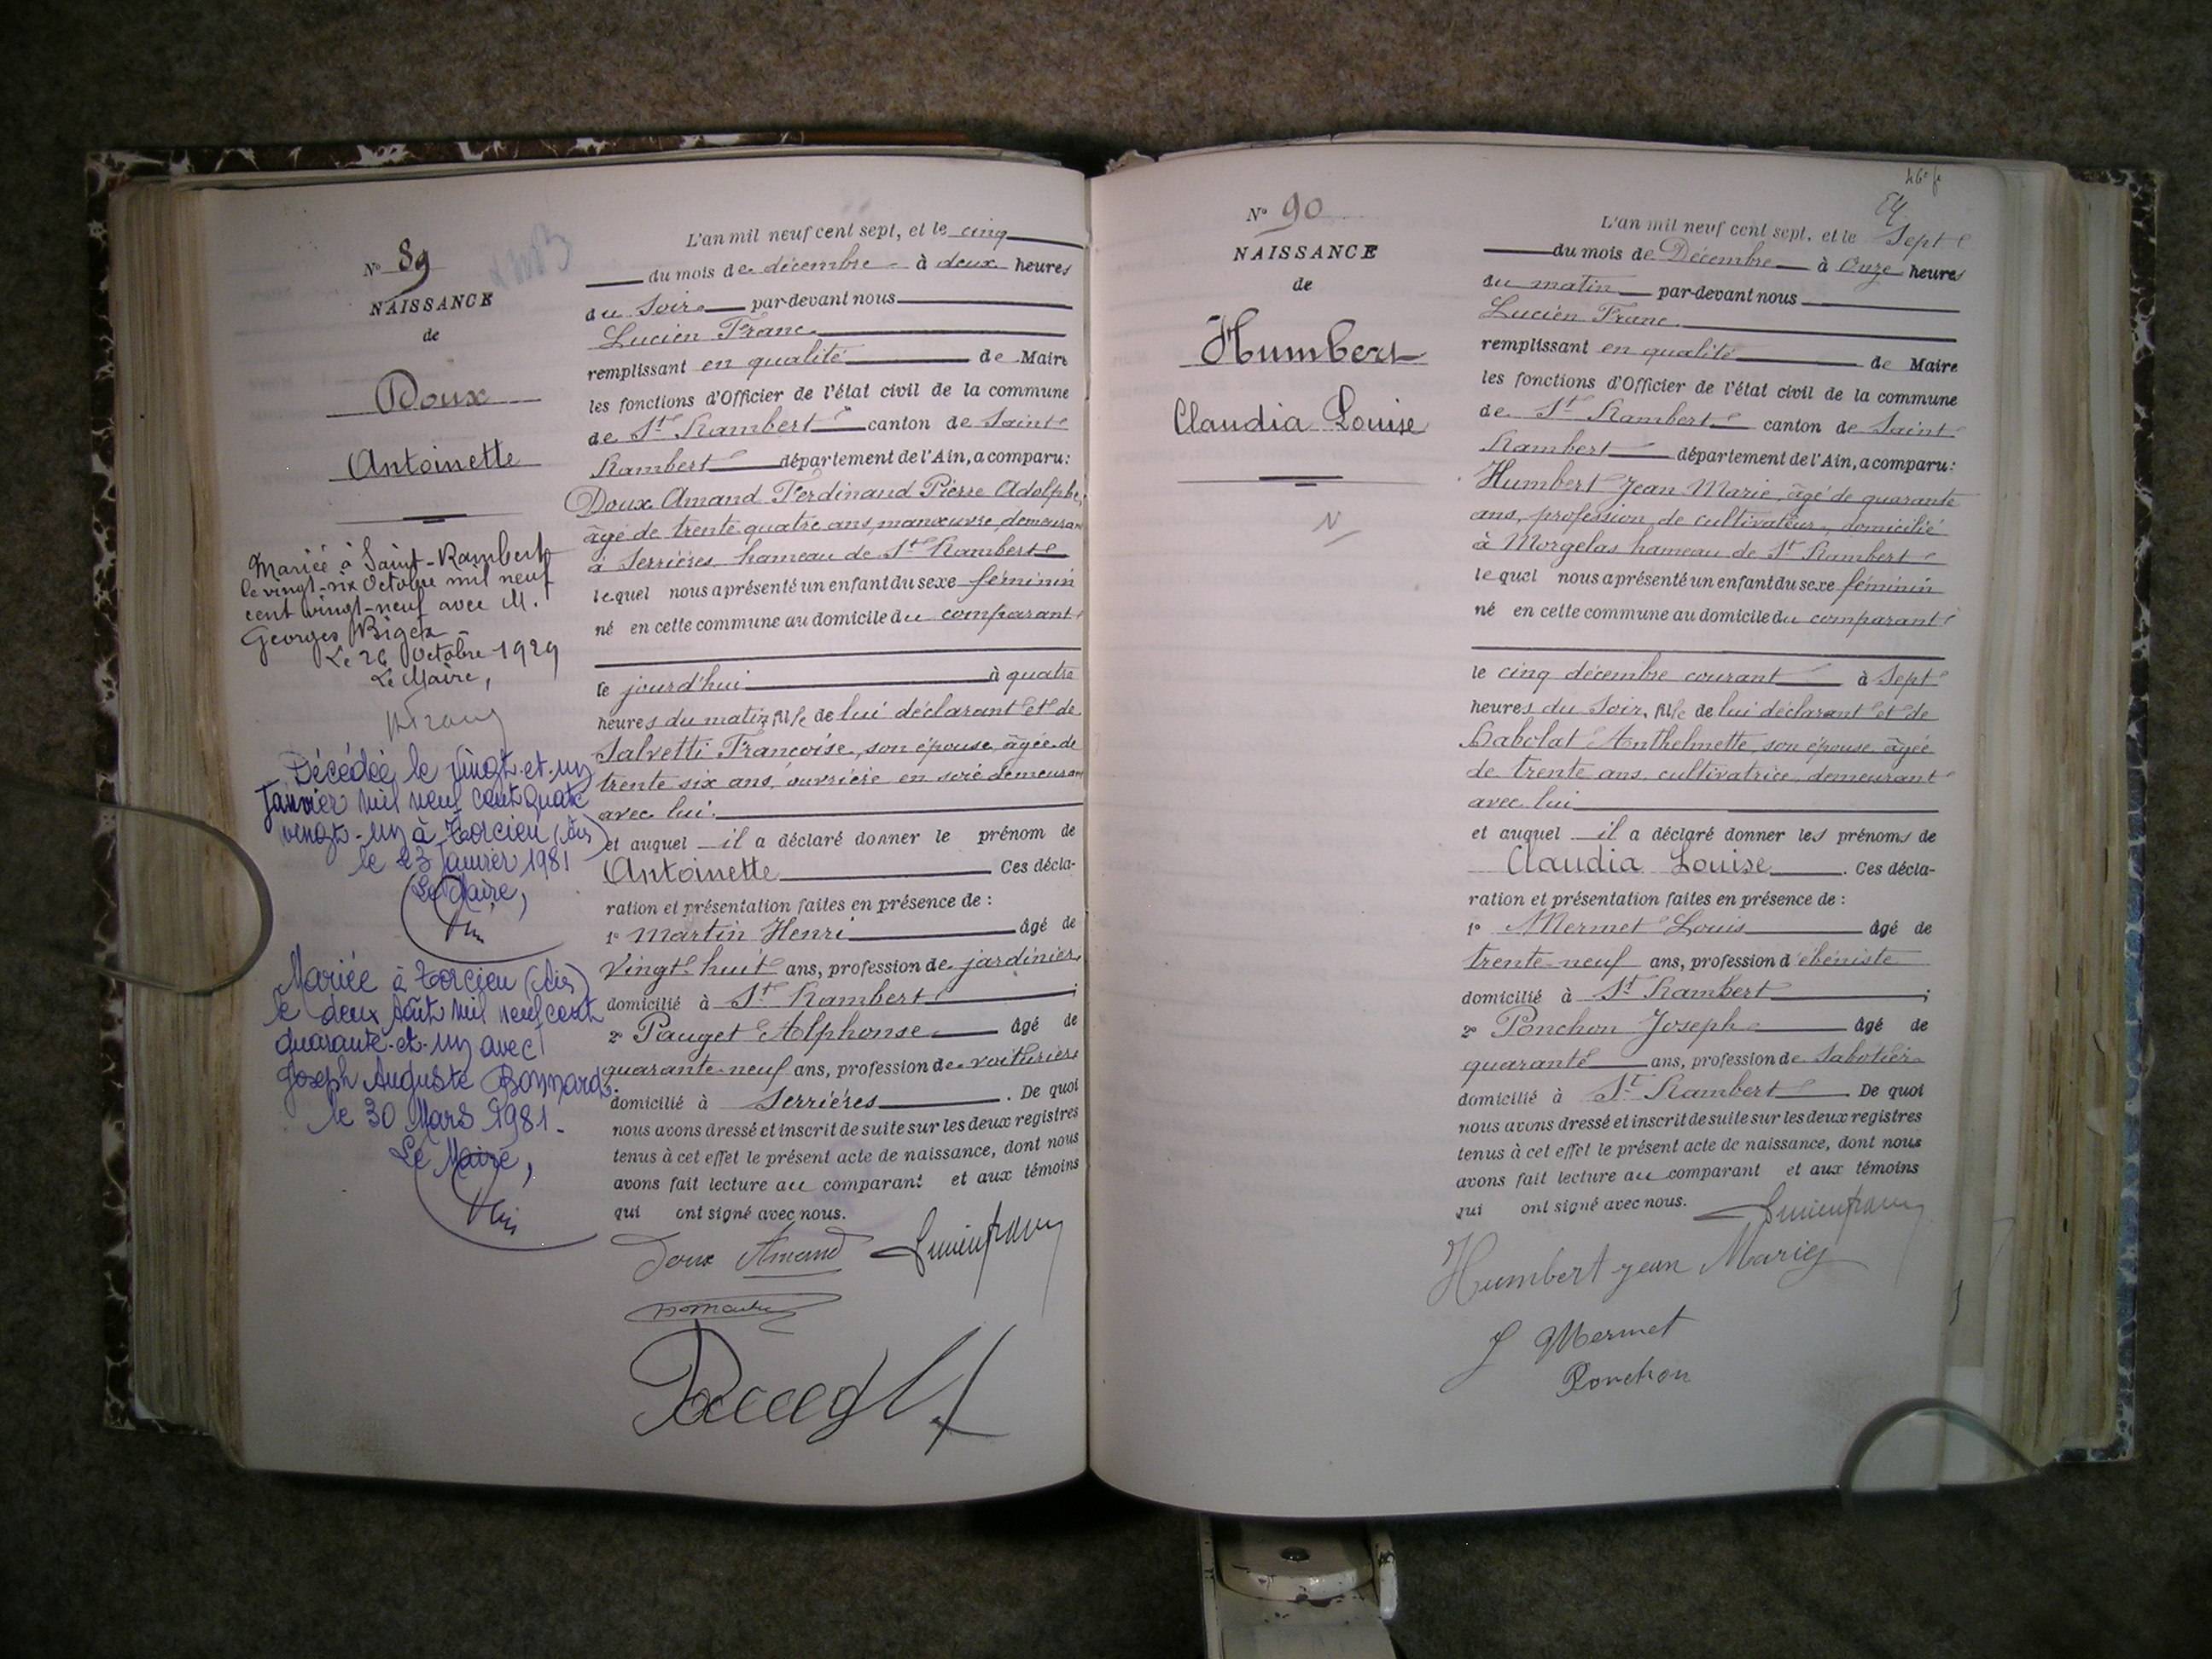 Nº 89
NAISSANCE
de
Doux
Antoinette
Mariée à Saint-Rambert
le vingt-six Octobre mil neuf
cent vingt-neuf avec M.
Georges Bigex
Le 26 Octobre 1929
Le Maire,
Décédée le vingt-et-un
Janvier mil neuf cent quatre
vingt-un à Torcieu (Ain)
le 23 Janvier 1981
Le Maire,
Mariée à Torcieu (Ain)
le deux Août mil neuf cent
quarante-et-un avec
Joseph Auguste Bonnard.
le 30 Mars 1981.
Le Maire,
L'an mil neuf cent sept, et le cinq
du mois de décembre à deux heures
du soir par-devant nous
Lucien Franc
remplissant en qualité de Maire
les fonctions d'Officier de l'état civil de la commune
de St Rambert canton de Saint
Rambert département de l'Ain, a comparu:
Doux Amand Ferdinand Pierre Adolphe,
âgé de trente quatre ans, manœuvre demeurant
à Serrières hameau de St Rambert
lequel nous a présenté un enfant du sexe féminin
né en cette commune au domicile du comparant
le jourd'hui à quatre
heures du matin, fille de lui déclarant et de
Salvetti Francoise, son épouse, âgée de
trente six ans, ouvrière en soie demeurant
avec lui.
et auquel il a déclaré donner le prénom de
Antoinette Ces décla-
ration et présentation faites en présence de :
1º Martin Henri âgé de
Vingt huit ans, profession de jardinier
domicilié à St Rambert ;
2º Pauget Alphonse âgé de
quarante-neuf ans, profession de voiturier
domicilié à Serrières . De quoi
nous avons dressé et inscrit de suite sur les deux registres
tenus à cet effet le présent acte de naissance, dont nous
avons fait lecture au comparant et aux témoins
qui ont signé avec nous.
Doux Amand Lucien Franc
Nº 90
NAISSANCE
de
Humbert
Claudia Louise
N
L'an mil neuf cent sept, et le Sept
du mois de Décembre à Onze heures
du matin par-devant nous
Lucien Franc
remplissant en qualité de Maire
les fonctions d'Officier de l'état civil de la commune
de St Rambert canton de Saint
Rambert département de l'Ain, a comparu:
Humbert Jean Marie, âgé de quarante
ans, profession de cultivateur, domicilié
à Morgelas hameau de St Rambert
lequel nous a présenté un enfant du sexe féminin
né en cette commune au domicile du comparant
le cinq décembre courant à Sept
heures du Soir, fille de lui déclarant et de
Babolat Anthelmette, son épouse âgée
de trente ans, cultivatrice, demeurant
avec lui
et auquel il a déclaré donner les prénoms de
Claudia Louise . Ces décla-
ration et présentation faites en présence de :
1º Mermet Louis âgé de
trente-neuf ans, profession d'ébéniste
domicilié à St Rambert ;
2º Ponchon Joseph âgé de
quarante ans, profession de Sabotier
domicilié à St Rambert De quoi
nous avons dressé et inscrit de suite sur les deux registres
tenus à cet effet le présent acte de naissance, dont nous
avons fait lecture au comparant et aux témoins
qui ont signé avec nous. Lucien Franc
Humbert jean Marie
Mermet
Ponchon